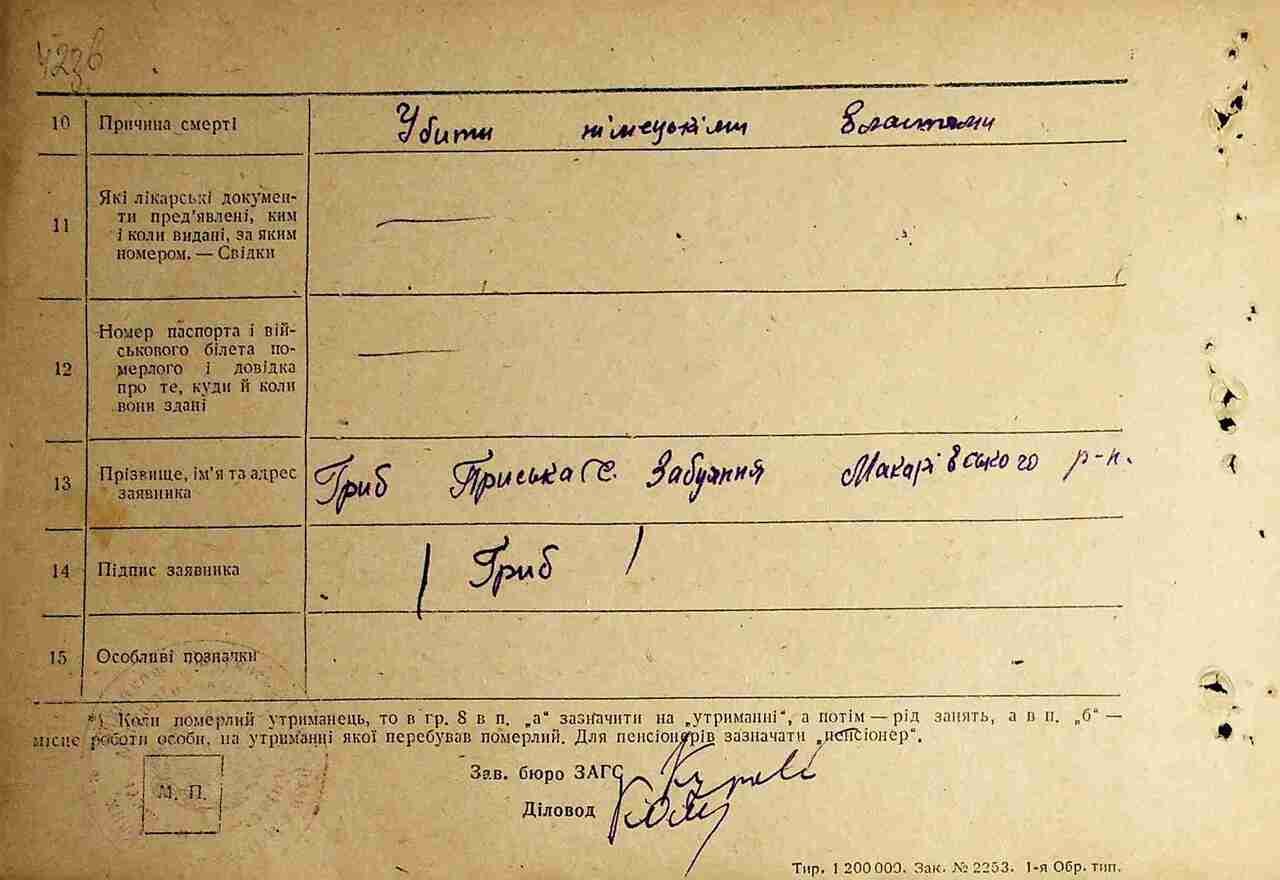 4236
10 Причина смерті Убити німецькіми властями
11 Які лікарські докумен-
ти пред'явлені, ким
і коли видані, за яким
номером. — Свідки —
12 Номер паспорта і вій-
ськового білета по-
мерлого і довідка
про те, куди й коли
вони здані —
13 Прізвище, ім'я та адрес Гриб Приська Є. Забуяння Макарівського р-н.
заявника
14 Підпис заявника / Гриб /
15 Особливі позначки
*) Коли померлий утриманець, то в гр. 8 в п. „а“ зазначити на „утриманні“, а потім — рід занять, а в п. „б“ —
місце роботи особи, на утриманні якої перебував померлий. Для пенсіонерів зазначати „пенсіонер“.
Зав. бюро ЗАГС
М. П.
Діловод
Тир. 1 200 000. Зак. № 2253. 1-я Обр. тип.